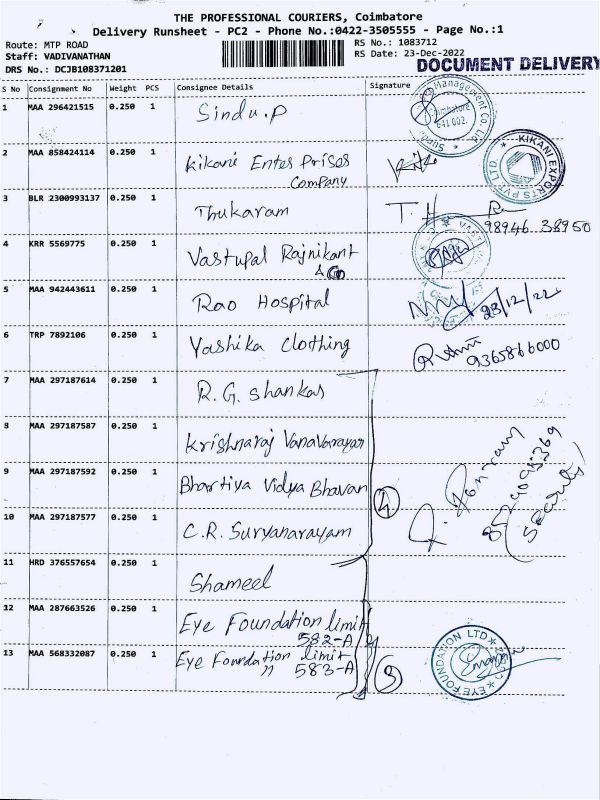 THE PROFESSIONAL COURIERS, Coimbatore
Delivery Runsheet - PC2 - Phone No.:0422-3505555 - Page No.:1
Route: MTP ROAD
Staff: VADIVANATHAN
DRS No.: DCJB108371201
RS No.: 1083712
RS Date: 23-Dec-2022
DOCUMENT DELIVERY
S No Consignment No Weight PCS Consignee Details Signature
1 MAA 296421515 0.250 1 Sindu.P
Management Co. Ltd
Coimbatore
641 002.
2 MAA 858424114 0.250 1 Kikani Enterprises
Company
KIKANI EXPORTS PVT LTD.
3 BLR 2300993137 0.250 1 Thukaram T.H
98946 38950
4 KRR 5569775 0.250 1 Vastupal Rajnikant
& Co
5 MAA 942443611 0.250 1 Rao Hospital 23/12/22
6 TRP 7892106 0.250 1 Yashika Clothing
9365866000
7 MAA 297187614 0.250 1 R.G. Shankar
8 MAA 297187587 0.250 1 Krishnaraj Vanavarayar
9 MAA 297187592 0.250 1 Bhartiya Vidya Bhavan
4
10 MAA 297187577 0.250 1 C.R. Suryanarayam
(Security)
11 HRD 376557654 0.250 1 Shameel
12 MAA 287663526 0.250 1 Eye Foundation limit
582-A
13 MAA 568332087 0.250 1 Eye Foundation limit
" 583-A
3
EYE FOUNDATION LTD